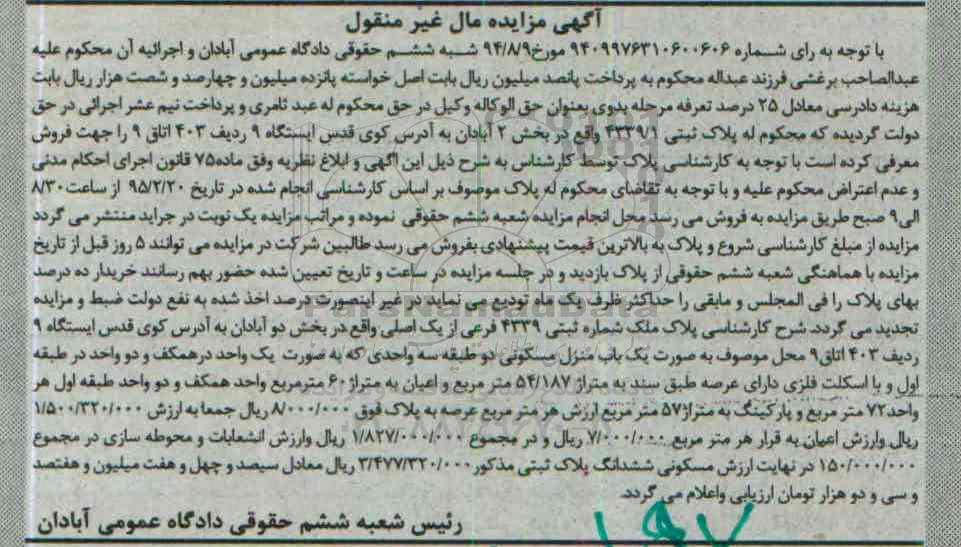 آگهی مزایده مال غیر منقول
با توجه به رای شماره ۹۴۰۹۹۷۶۳۱۰۶۰۰۶۰۶ مورخ۹۴/۸/۹ شعبه ششم حقوقی دادگاه عمومی آبادان و اجرائیه آن محکوم علیه
عبدالصاحب برغشی فرزند عبداله محکوم به پرداخت پانصد میلیون ریال بابت اصل خواسته پانزده میلیون و چهارصد و شصت هزار ریال بابت
هزینه دادرسی معادل ۲۵ درصد تعرفه مرحله بدوی بعنوان حق الوکاله وکیل در حق محکوم له عبد ثامری و پرداخت نیم عشر اجرائی در حق
دولت گردیده که محکوم له پلاک ثبتی ۴۳۳۹/۱ واقع در بخش ۲ آبادان به آدرس کوی قدس ایستگاه ۹ ردیف ۴۰۳ اتاق ۹ را جهت فروش
معرفی کرده است با توجه به کارشناسی پلاک توسط کارشناس به شرح ذیل این اگهی و ابلاغ نظریه وفق ماده۷۵ قانون اجرای احکام مدنی
و عدم اعتراض محکوم علیه و با توجه به تقاضای محکوم له پلاک موصوف بر اساس کارشناسی انجام شده در تاریخ ۹۵/۲/۲۰ از ساعت ۸/۳۰
الی۹ صبح طریق مزایده به فروش می رسد محل انجام مزایده شعبه ششم حقوقی نموده و مراتب مزایده یک نوبت در جراید منتشر می گردد
مزایده از مبلغ کارشناسی شروع و پلاک به بالاترین قیمت پیشنهادی بفروش می رسد طالبین شرکت در مزایده می توانند ۵ روز قبل از تاریخ
مزایده با هماهنگی شعبه ششم حقوقی از پلاک بازدید و در جلسه مزایده در ساعت و تاریخ تعیین شده حضور بهم رسانند خریدار ده درصد
بهای پلاک را فی المجلس و مابقی را حداکثر ظرف یک ماه تودیع می نماید در غیر اینصورت درصد اخذ شده به نفع دولت ضبط و مزایده
تجدید می گردد. شرح کارشناسی پلاک ملک شماره ثبتی ۴۳۳۹ فرعی از یک اصلی واقع در بخش دو آبادان به آدرس کوی قدس ایستگاه ۹
ردیف ۴۰۳ اتاق۹ محل موصوف به صورت یک باب منزل مسکونی دو طبقه سه واحدی که به صورت یک واحد درهمکف و دو واحد در طبقه
اول و با اسکلت فلزی دارای عرصه طبق سند به متراژ ۵۴/۱۸۷ متر مربع و اعیان به متراژ۶۰ مترمربع واحد همکف و دو واحد طبقه اول هر
واحد۷۲ متر مربع و پارکینگ به متراژ۵۷ متر مربع ارزش هر متر مربع عرصه به پلاک فوق ۸/۰۰۰/۰۰۰ ریال جمعا به ارزش ۱/۵۰۰/۳۲۰/۰۰۰
ریال وارزش اعیان به قرار هر متر مربع ۷/۰۰۰/۰۰۰ ریال و در مجموع ۱/۸۲۷/۰۰۰/۰۰۰ ریال وارزش انشعابات و محوطه سازی در مجموع
۱۵۰/۰۰۰/۰۰۰ در نهایت ارزش مسکونی ششدانگ پلاک ثبتی مذکور ۳/۴۷۷/۳۲۰/۰۰۰ ریال معادل سیصد و چهل و هفت میلیون و هفتصد
و سی و دو هزار تومان ارزیابی واعلام می گردد.
رئیس شعبه ششم حقوقی دادگاه عمومی آبادان
ParsNamadData